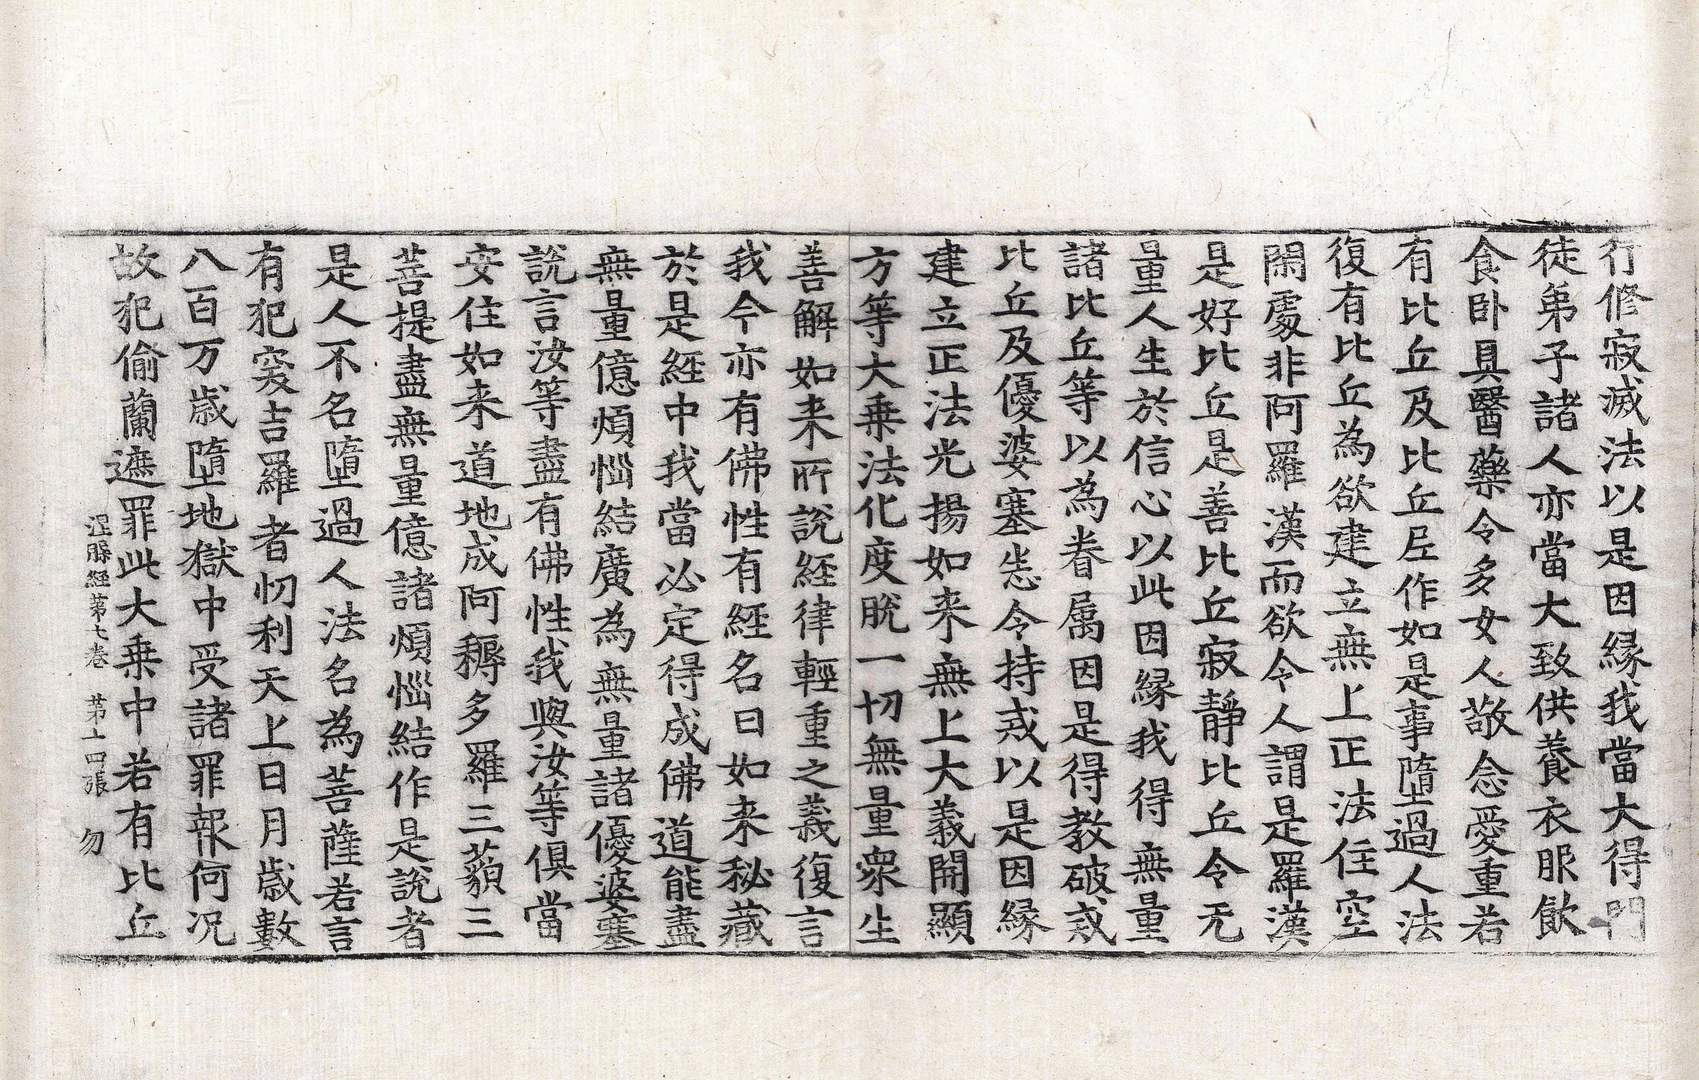 行修寂滅法以是因縁我當大得門
徒弟子諸人亦當大致供養衣服飲
食卧具醫藥令多女人敬念愛重若
有比丘及比丘尼作如是事墮過人法
復有比丘為欲建立無上正法住空
閑處非阿羅漢而欲令人謂是羅漢
是好比丘是善比丘寂靜比丘令无
量人生於信心以此因縁我得無量
諸比丘等以為眷属因是得教破戒
比丘及優婆塞悉令持戒以是因縁
建立正法光揚如来無上大義開顯
方等大乗法化度脱一切無量衆生
善解如来所說経律輕重之義復言
我今亦有佛性有経名曰如来秘藏
於是経中我當必定得成佛道能盡
無量億煩惱結廣為無量諸優婆塞
說言汝等盡有佛性我與汝等俱當
安住如来道地成阿耨多羅三藐三
菩提盡無量億諸煩惱結作是說者
是人不名墮過人法名為菩薩若言
有犯突吉羅者忉利天上日月歲數
八百万歲墮地獄中受諸罪報何况
故犯偷蘭遮罪此大乗中若有比丘
涅槃経第七卷　第十四張　勿